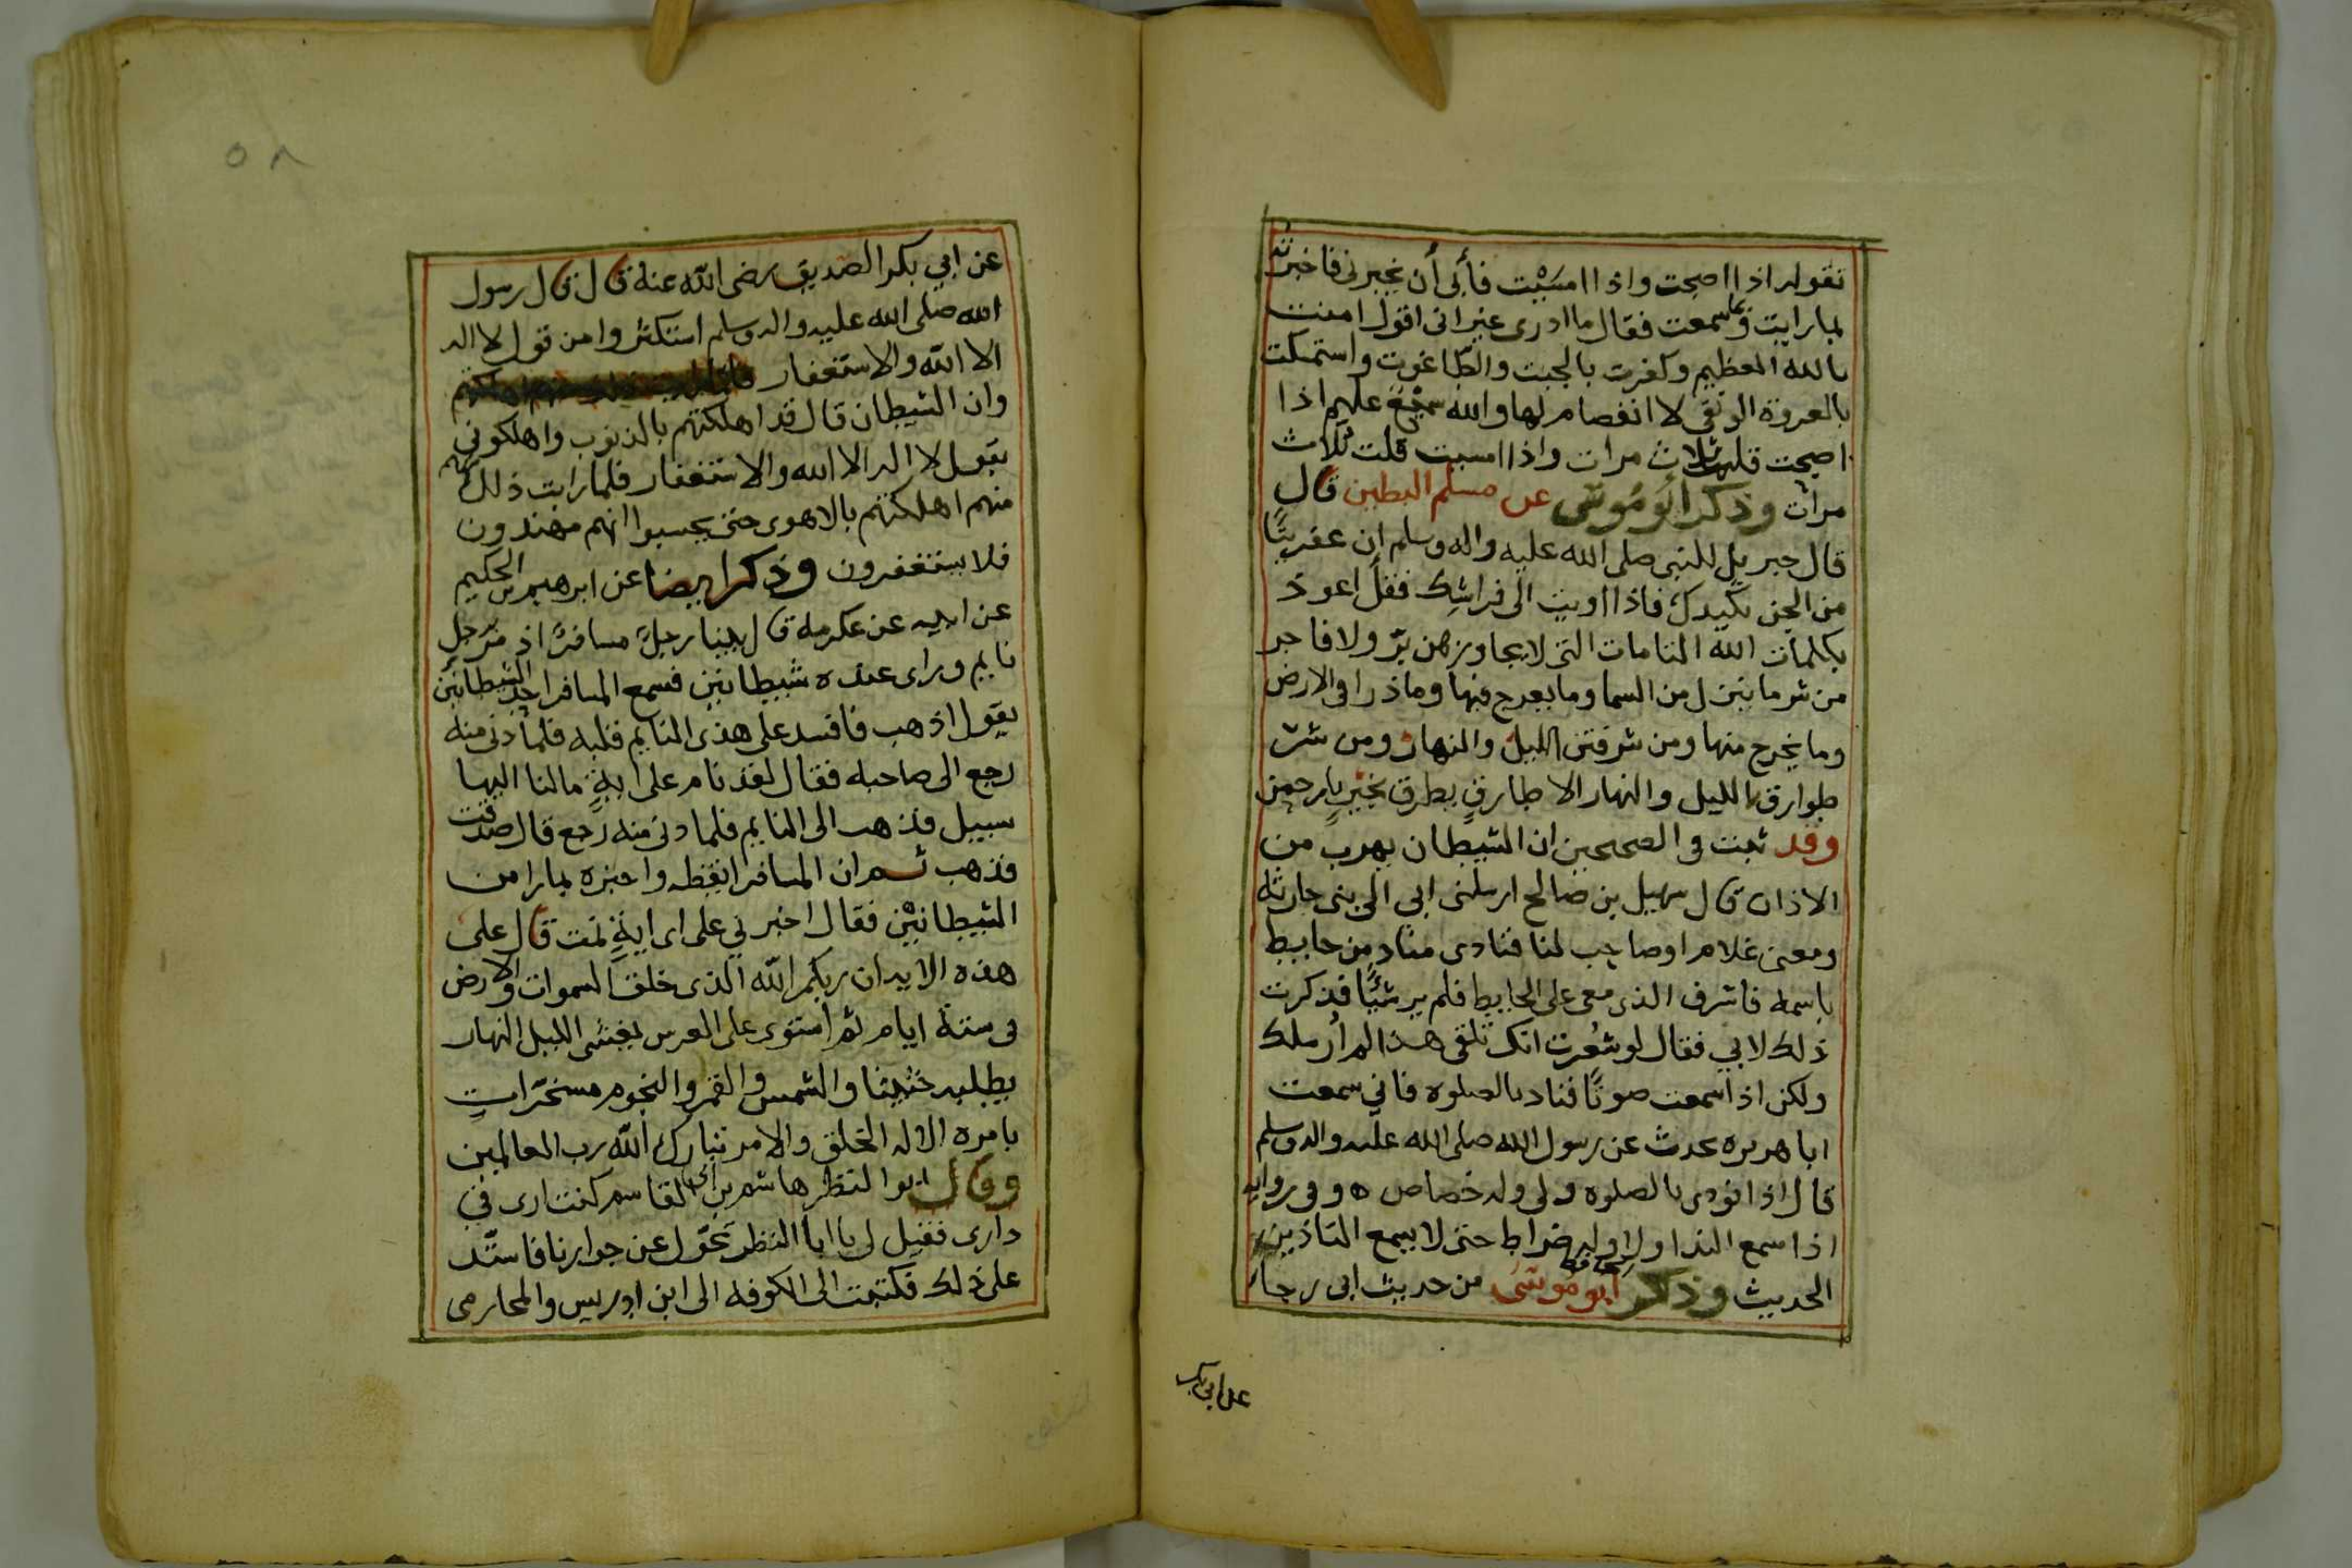 تقوله اذا اصبحت واذا امسَيْت فأبى أن يخبرنى فاخبرته
بما رايت وما سمعت فقال ما ادرى غير انى اقول امنت
بالله العظيم وكفرت بالجبت والطاغوت واستمسكت
بالعروة الوثقى لا انفصام لها والله سميع عليم اذا
اصبحت قلتها ثلاث مرات واذا امسيت قلت ثلاث
مرات وذكر ابو موسى عن مسلم البطين قال
قال جبريل للنبى صلى الله عليه واله وسلم ان عفريتًا
من الجن يكيدك فاذا اويت الى فراشِك فقل اعوذ
بكلمات الله التامات التى لا يجاوزهن برّ ولا فاجر
من شر ما ينزل من السما وما يعرج فيها وما ذرا فى الارض
وما يخرج منها ومن شر فتن الليل والنهار ومن شر
طوارق الليل والنهار الا طارقٍ يطرق بخيرٍ يا رحمن
وقد ثبت فى الصحيحين ان الشيطان يهرب من
الاذان قال سهيل بن صالح ارسلنى ابى الى بنى حارثة
ومعى غلام او صاحب لنا فنادى منادٍ من حايط
باسمه فاشرف الذى معى على الحايط فلم ير شيًا فذكرت
ذلك لابي فقال لو شعُرت انك تلقى هذا لم أرسلك
ولكن اذا سمعت صوتًا فناد بالصلوه فاني سمعت
ابا هريره يحدث عن رسول الله صلى الله عليه واله وسلم
قال اذا نودى بالصلوه ولى وله خصاص ه وفى روايه
اذا سمع الندا ولى وله ضراط حتى لا يسمع التاذين
الحديث وذكر الحافظ ابو موسى من حديث ابى رجا
عن ابى بكر
٥٨
عن ابي بكر الصديق رضى الله عنه قال قال رسول
الله صلى الله عليه واله وسلم استكثروا من قول لا اله
الا الله والاستغفار
وان الشيطان قال قد اهلكتهم بالذنوب واهلكونى
بقول لا اله الا الله والاستغفار فلما رايت ذلك
منهم اهلكتهم بالاهوى حتى يحسبوا انهم مهتدون
فلا يستغفرون وذكر ايضا عن ابرهيم بن الحكيم
عن ابيه عن عكرمه قال بينا رجلٌ مسافرٌ اذ مر برجل
نايم وراى عنده شيطانين فسمع المسافر احد الشيطانين
يقول اذهب فافسد على هذى النايم قلبه فلما دنى منه
رجع الى صاحبه فقال لقد نام على ايةٍ ما لنا اليها
سبيل فذهب الى النايم فلما دنى منه رجع قال صدقت
فذهب ثم ان المسافر ايقظه واخبره بما را من
الشيطانَيْن فقال اخبرني على اى ايةٍ نمت قال على
هذه الايه ان ربكم الله الذى خلق السموات والارض
فى ستة ايام ثم استوى على العرس يغشى الليل النهار
يطلبه حثيثا والشمس والقمر والنجوم مسخرات
بامره الا له الخلق والامر تبارك الله رب العالمين
وقال ابوا النظر هاشم بن القاسم كنت ارى في
دارى فقيل لى يا ابا النظر تحوّل عن جوارنا فاستد
على ذلك فكتبت الى الكوفه الى ابن ادريس والمحارمى